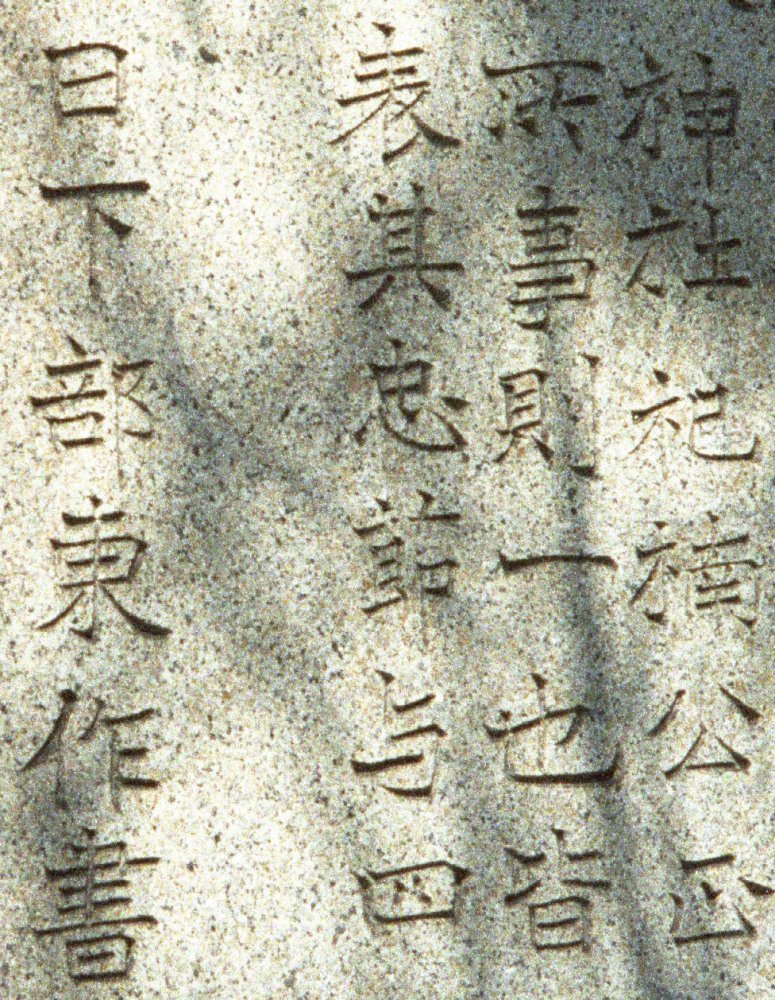 神社祀楠公正
所事則一也皆
表其忠詰与四
日下部東作書